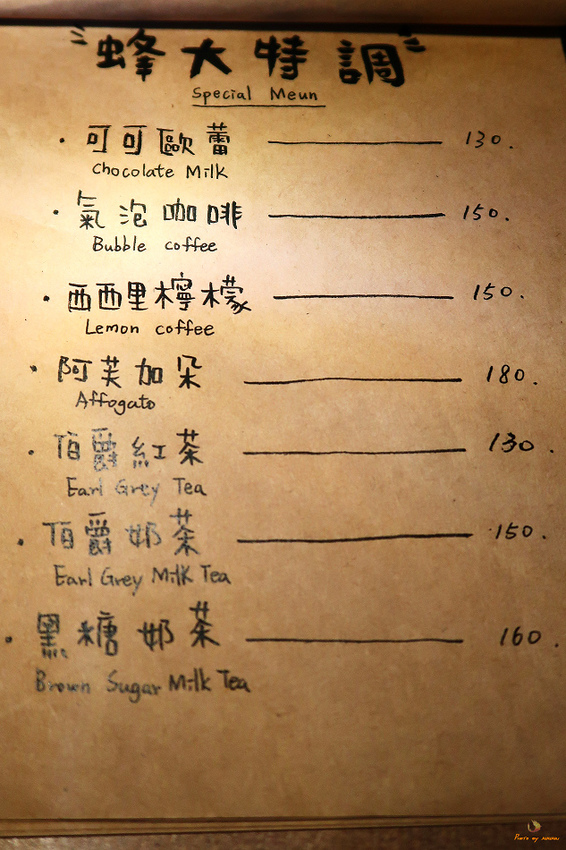 "蜂大特調"
Special Meun
· 可可歐蕾 130.
Chocolate Milk
· 氣泡咖啡 150.
Bubble coffee
· 西西里檸檬 150.
Lemon coffee
· 阿芙加朵 180.
Affogato
· 伯爵紅茶 130.
Earl Grey Tea
· 伯爵奶茶 150.
Earl Grey Milk Tea
· 黑糖奶茶 160.
Brown Sugar Milk Tea